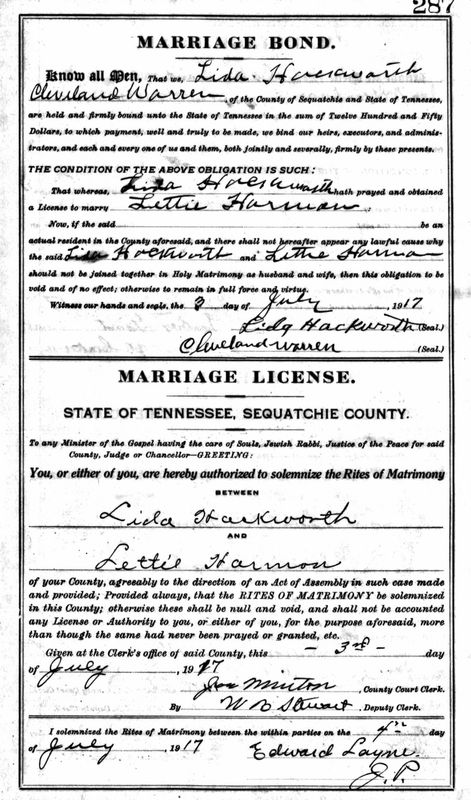 287
MARRIAGE BOND.
Know all Men, That we, Lida Hackworth
Cleveland Warren, of the County of Sequatchie and State of Tennessee,
are held and firmly bound unto the State of Tennessee in the sum of Twelve Hundred and Fifty
Dollars, to which payment, well and truly to be made, we bind our heirs, executors, and adminis-
trators, and each and every one of us and them, both jointly and severally, firmly by these presents.
THE CONDITION OF THE ABOVE OBLIGATION IS SUCH:
That whereas, Lida Hackworth hath prayed and obtained
a License to marry Lettie Harmon
Now, if the said be an
actual resident in the County aforesaid, and there shall not hereafter appear any lawful cause why
the said Lida Hackworth and Lettie Harmon
should not be joined together in Holy Matrimony as husband and wife, then this obligation to be
void and of no effect; otherwise to remain in full force and virtue.
Witness our hands and seals, the 3 day of July, 1917
Lida Hackworth (Seal.)
Cleveland Warren (Seal.)
MARRIAGE LICENSE.
STATE OF TENNESSEE, SEQUATCHIE COUNTY.
To any Minister of the Gospel having the care of Souls, Jewish Rabbi, Justice of the Peace for said
County, Judge or Chancellor—GREETING:
You, or either of you, are hereby authorized to solemnize the Rites of Matrimony
BETWEEN
Lida Hackworth
AND
Lettie Harmon
of your County, agreeably to the direction of an Act of Assembly in such case made
and provided; Provided always, that the RITES OF MATRIMONY be solemnized
in this County; otherwise these shall be null and void, and shall not be accounted
any License or Authority to you, or either of you, for the purpose aforesaid, more
than though the same had never been prayed or granted, etc.
Given at the Clerk's office of said County, this - 3rd - day
of July, 1917
Joe Minton, County Court Clerk.
By W B Stewart, Deputy Clerk.
I solemnized the Rites of Matrimony between the within parties on the 4th day
of July, 1917 Edward Layne
J.P.